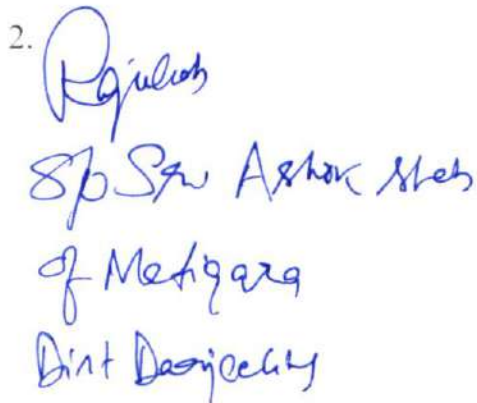 2.
S/o Sri Ashok Shah
of Matigara
Dist Darjeeling